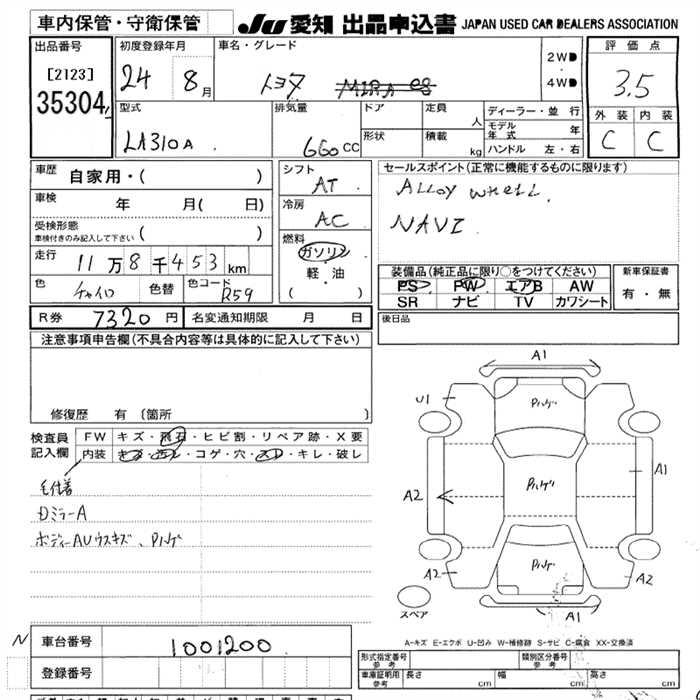 車内保管・守衛保管
JU 愛知 出品申込書 JAPAN USED CAR DEALERS ASSOCIATION
出品番号
[2123]
35304
初度登録年月
24 8月
車名・グレード
トヨタ MIRA es
2WD
・
4WD
評価点
3.5
外装 内装
C C
型式
LA310A
排気量
660cc
ドア
形状
定員 人
積載 kg
ディーラー・並行
モデル年式 年
ハンドル 左・右
車歴 自家用・( )
車検 年 月(日)
受検形態
車検付きのみ記入して下さい ( )
走行 11万8千453km
色 チャイロ 色替 色コード R59
シフト
AT
冷房
AC
燃料
ガソリン
・
軽・油
( )
セールスポイント(正常に機能するものに限ります)
ALLOY WHELL.
NAVI
装備品(純正品に限り○をつけてください)
PS PW エアB AW
SR ナビ TV カワシート
新車保証書
有・無
R券 7320円 名変通知期限 月 日
後日品
注意事項申告欄(不具合内容等は具体的に記入して下さい)
修復歴 有 (箇所
検査員記入欄
FW キズ・飛石・ヒビ割・リペア跡・X要
内装 キズ・汚レ・コゲ・穴・スレ・キレ・破レ
毛付着
DミラーA
ボディーAUウスキズ、Pハゲ
A1
U1 Pハゲ
A2 Pハゲ A1
A2 Pハゲ A2
A1
スペア
A-キズ E-エクボ U-凹み W-補修跡 S-サビ C-腐食 XX-交換済
N 車台番号 1001200
登録番号
形式指定番号
参考
類別区分番号
参考
車庫証明用
参考
長さ cm 幅 cm 高さ cm